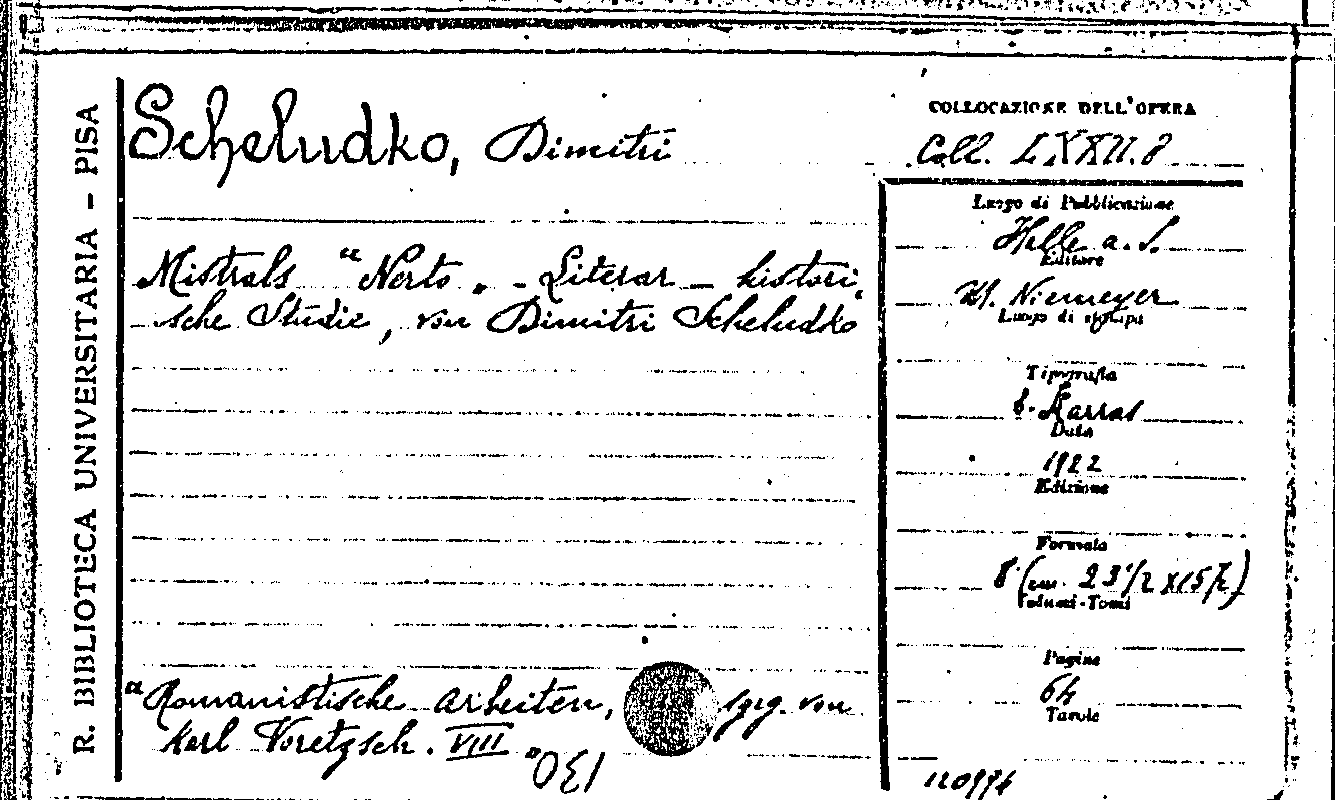 R. BIBLIOTECA UNIVERSITARIA - PISA
Scheludko, Dimitri
Mistrals "Nerto" - Literar - histori,
sche Studie, von Dimitri Scheludko
"Romanistische Arbeiten, hrg. von
Karl Voretzsch. VIII"
130
COLLOCAZIONE DELL'OPERA
Coll. LXXII.8
Luogo di Pubblicazione
Halle a. S.
Editore
M. Niemeyer
Luogo di stampa
Tipografia
E. Karras
Data
1922
Edizione
Formato
8° (cm. 23 1/2 x 15 1/2)
Volumi-Tomi
Pagine
64
Tavole